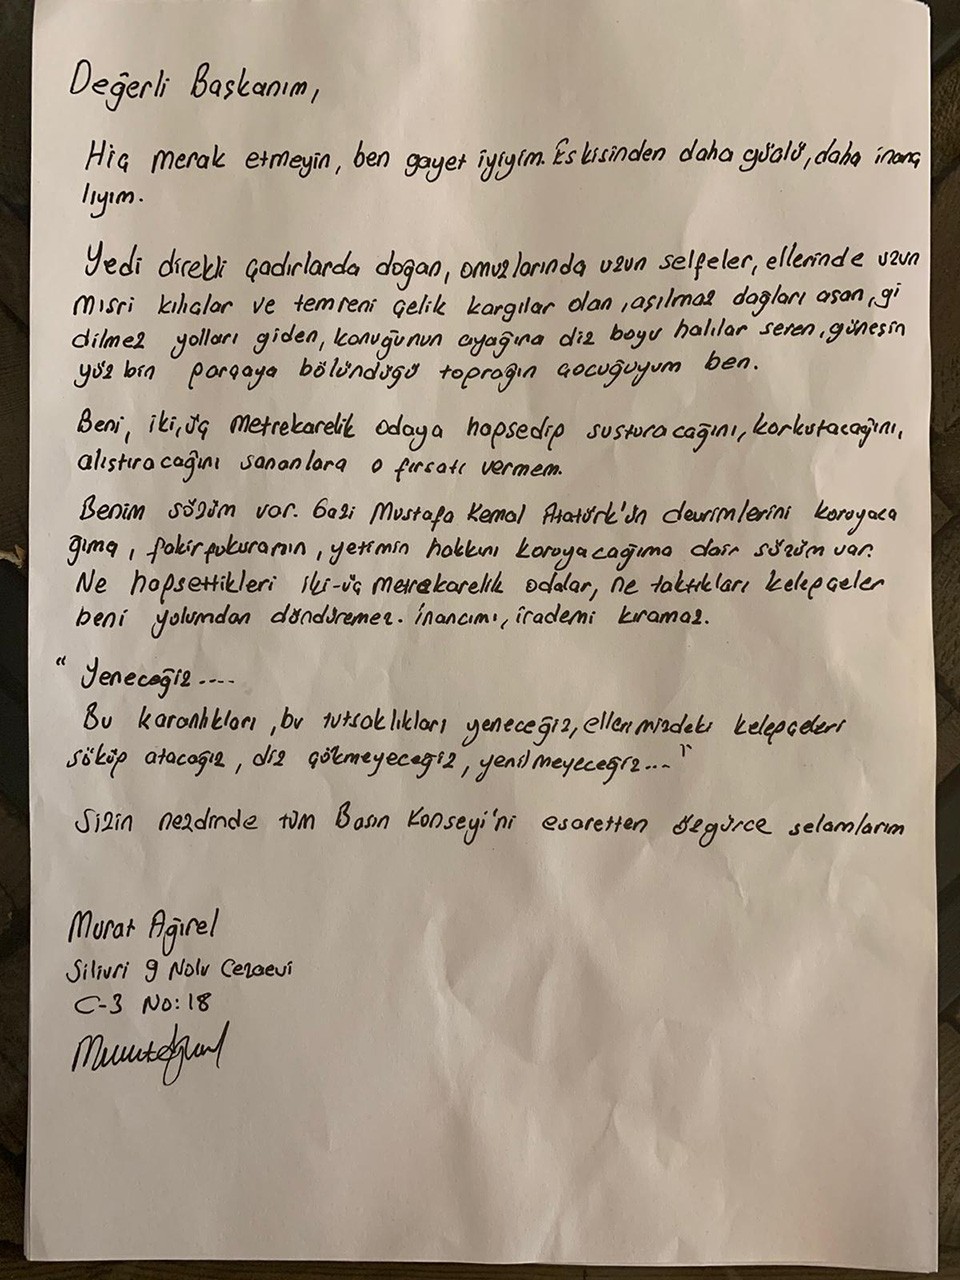 Değerli Başkanım,
Hiç merak etmeyin, ben gayet iyiyim. Eskisinden daha güçlü, daha inanç
lıyım.
Yedi direkli çadırlarda doğan, omuzlarında uzun selfeler, ellerinde uzun
mısri kılıçlar ve temreni çelik kargılar olan, aşılmaz dağları aşan, gi
dilmez yolları giden, konuğunun ayağına diz boyu halılar seren, güneşin
yüz bin parçaya bölündüğü toprağın çocuğuyum ben.
Beni, iki, üç metrekarelik odaya hapsedip susturacağını, korkutacağını,
alıştıracağını sananlara o fırsatı vermem.
Benim sözüm var. Gazi Mustafa Kemal Atatürk'ün devrimlerini koruyaca
ğıma, fakirfukuranın, yetimin hakkını koruyacağıma dair sözüm var.
Ne hapsettikleri iki-üç metrekarelik odalar, ne taktıkları kelepçeler
beni yolumdan döndüremez. İnancımı, irademi kıramaz.
"Yeneceğiz....
Bu karanlıkları, bu tutsaklıkları yeneceğiz, ellerimizdeki kelepçeleri
söküp atacağız, diz çökmeyeceğiz, yenilmeyeceğiz..."
Sizin nezdinde tüm Basın Konseyi'ni esaretten özgürce selamlarım
Murat Ağırel
Silivri 9 Nolu Cezaevi
C-3 No:18